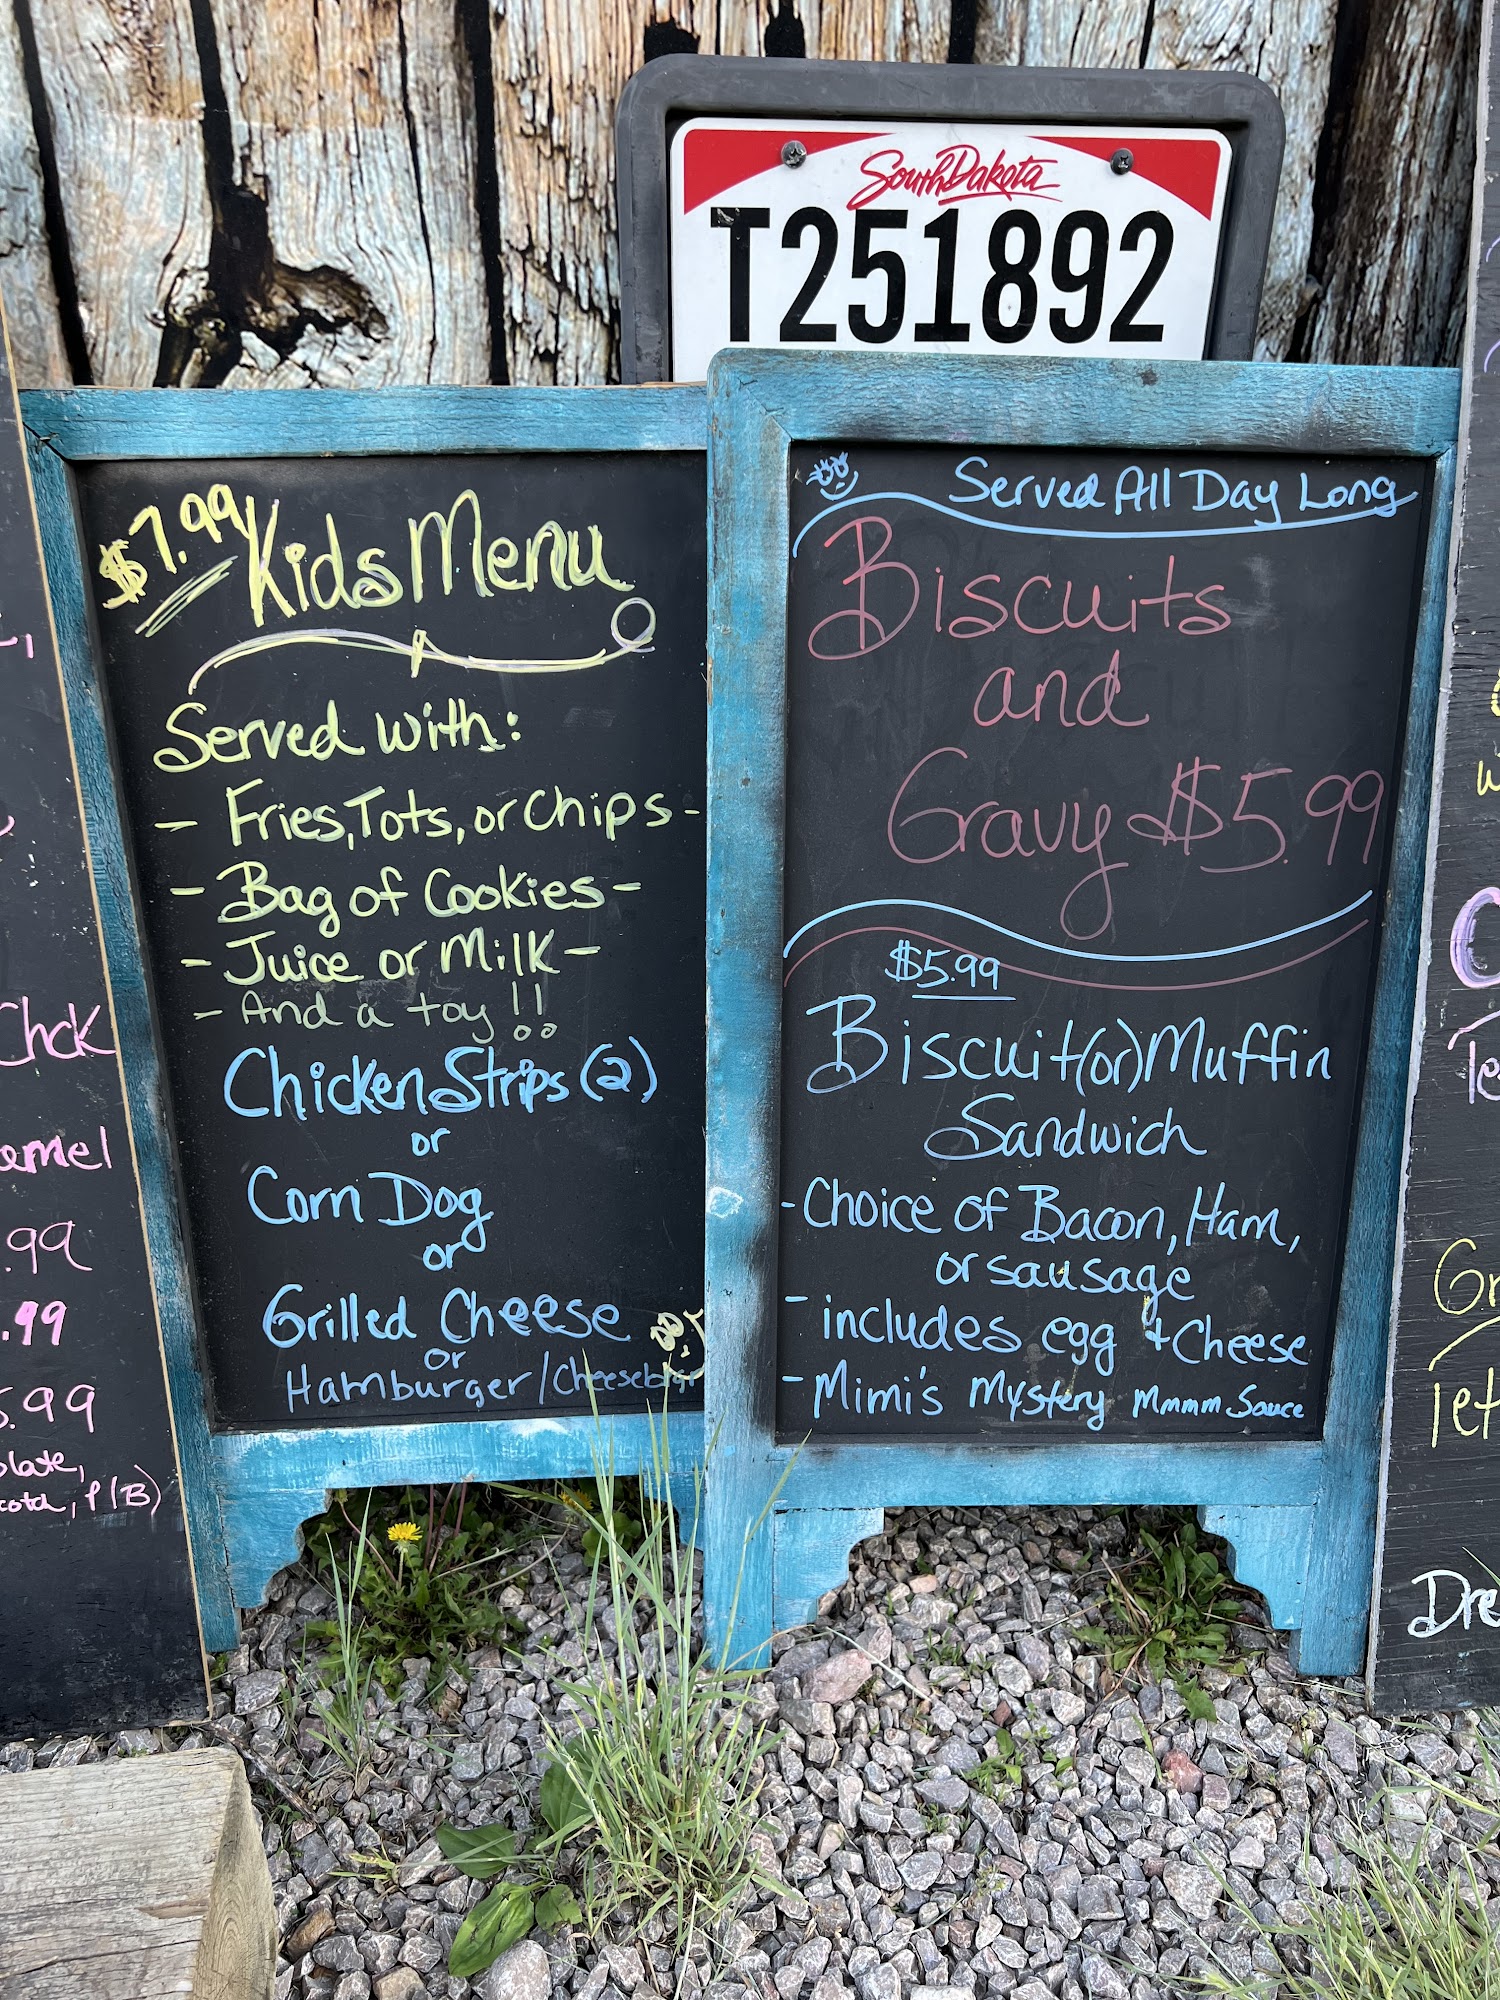 South Dakota
T251892
$7.99 Kids Menu
Served with:
- Fries, Tots, or Chips -
- Bag of Cookies -
- Juice or Milk -
- And a toy!!
Chicken Strips (2)
or
Corn Dog
or
Grilled Cheese
or
Hamburger/Cheeseburger
Served All Day Long
Biscuits
and
Gravy $5.99
$5.99
Biscuit (or) Muffin
Sandwich
- Choice of Bacon, Ham,
or sausage
- includes egg + Cheese
- Mimi's Mystery Mmmm Sauce
Chck
.99
.99
5.99
P/B)